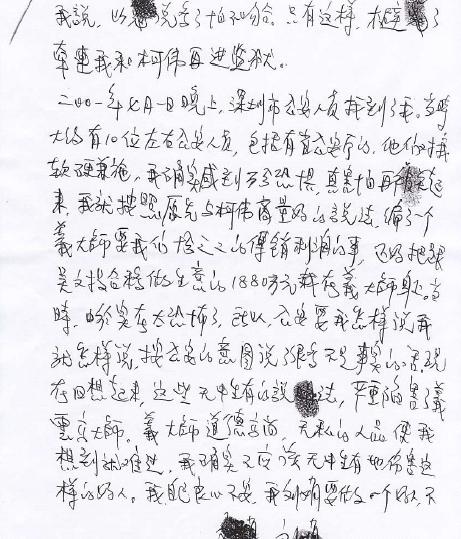 我说，必须说妥了怕不行。只有这样，才避了
牵连我和柯伟再进监狱。
二00一年七月一日晚上，深圳市公安人员找到了我。当时
大约有10位左右公安人员，包括省公安厅的，他们对我
软硬兼施，我确实感到万分恐惧，真害怕再被关起
来，我就按照原先与柯伟商量好的说法，编了一个
義大师要我们给之之的传销利润的事，还把张
吴文投合移做生意的1880万元转在義大师身上。当
时，由于实在太恐怖了，所以，公安要我怎样说我
就怎样说，按公安的意图说了很多不是事实的话。现
在回想起来，这些无中生有的说法，严重陷害了義
云高大师。義大师道德高尚，无私的人品使我
想到就难过，我确实不应该无中生有地伤害这
样的好人。我昧良心不安，我到时要做一个好人，不